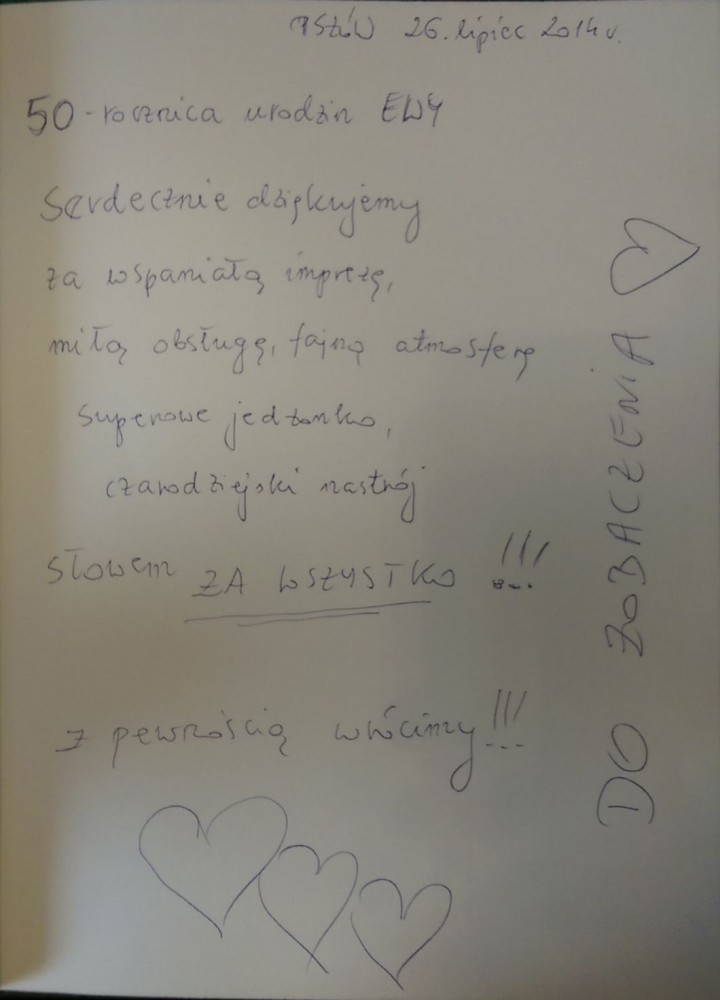 26. lipiec 2014 r.
50-rocznica urodzin EWY
Serdecznie dziękujemy
za wspaniałą imprezę,
miłą obsługę, fajną atmosferę
superowe jedzonko,
czarodziejski nastrój
słowem ZA WSZYSTKO !!!
z pewnością wrócimy!!!
DO ZOBACZENIA